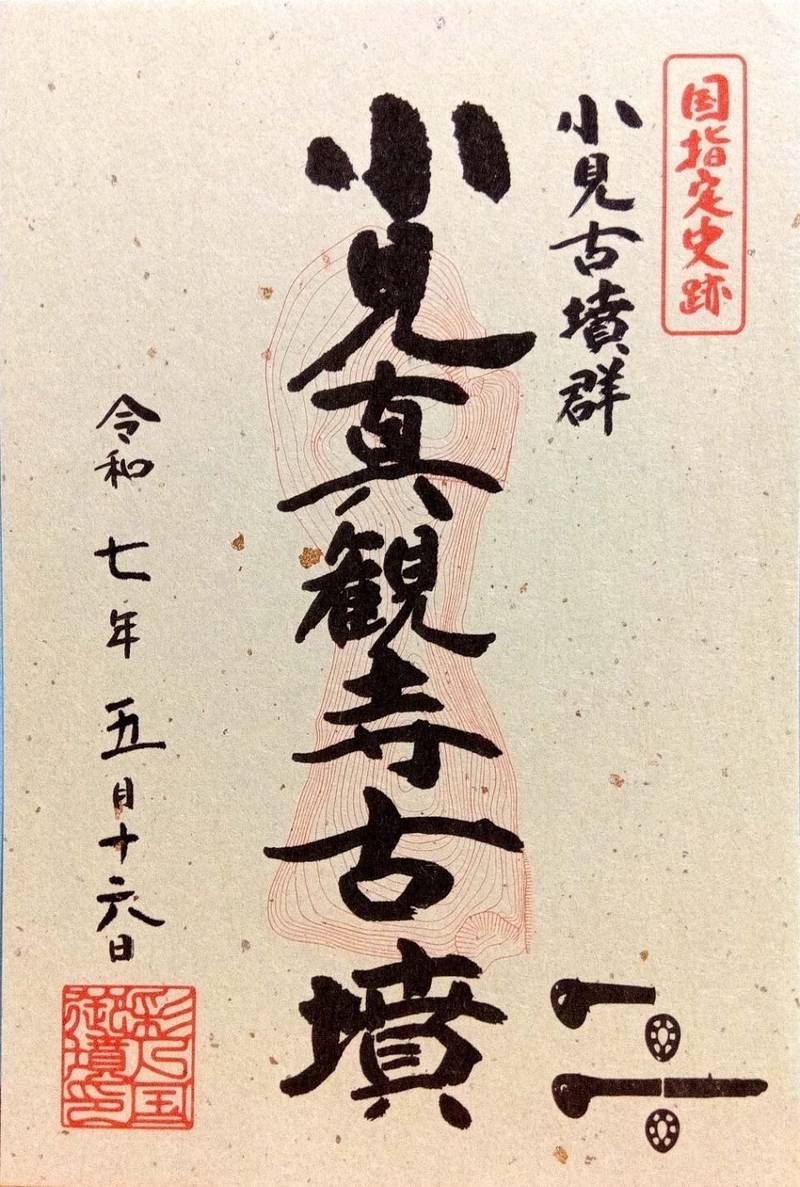 国指定史跡
小見古墳群
小見真観寺古墳
令和七年五月十六日
彩乃国
御墳印